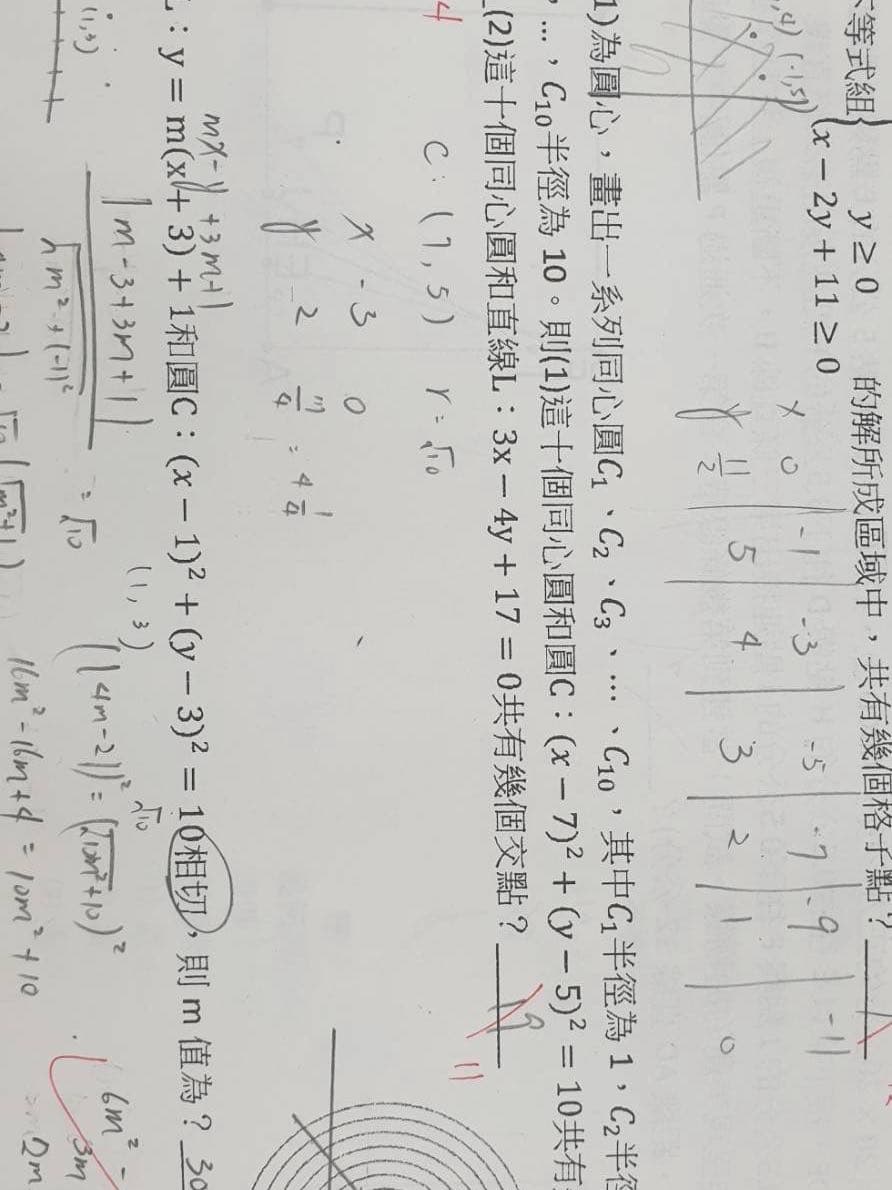 等式組{
y ≥ 0
x − 2y + 11 ≥ 0
的解所成區域中，共有幾個格子點？
(-1,5)
x 0 -1 -3 -5 -7 -9 -11
y 11/2 5 4 3 2 1 0
1)為圓心，畫出一系列同心圓C₁、C₂、C₃、…、C₁₀，其中C₁半徑為 1，C₂半徑
，…，C₁₀半徑為 10。則(1)這十個同心圓和圓C：(x − 7)² + (y − 5)² = 10共有
(2)這十個同心圓和直線L：3x − 4y + 17 = 0共有幾個交點？ 19
11
4
C : (7, 5) r = √10
x -3 0
y 2 17/4 = 4 1/4
mx-y+3m+1
：y = m(x + 3) + 1和圓C：(x − 1)² + (y − 3)² = 10相切，則 m 值為？
(1, 3)
|m-3+3m+1|
√m²+(-1)²
= √10
(|4m-2|)² = (√10m²+10)²
√10
16m²-16m+4 = 10m²+10
6m²-
3m
2m
(1,3)